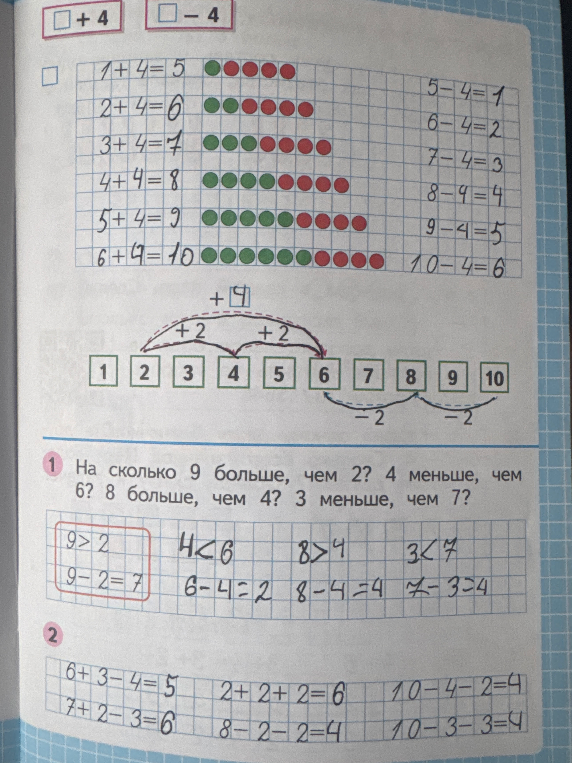 □ + 4 □ – 4
1 + 4 = 5 5 – 4 = 1
2 + 4 = 6 6 – 4 = 2
3 + 4 = 7 7 – 4 = 3
4 + 4 = 8 8 – 4 = 4
5 + 4 = 9 9 – 4 = 5
6 + 4 = 10 10 – 4 = 6
+ 4
+ 2 + 2
1 2 3 4 5 6 7 8 9 10
– 2 – 2
1 На сколько 9 больше, чем 2? 4 меньше, чем
6? 8 больше, чем 4? 3 меньше, чем 7?
9 > 2 4 < 6 8 > 4 3 < 7
9 – 2 = 7 6 – 4 = 2 8 – 4 = 4 7 – 3 = 4
2
6 + 3 – 4 = 5 2 + 2 + 2 = 6 10 – 4 – 2 = 4
7 + 2 – 3 = 6 8 – 2 – 2 = 4 10 – 3 – 3 = 4